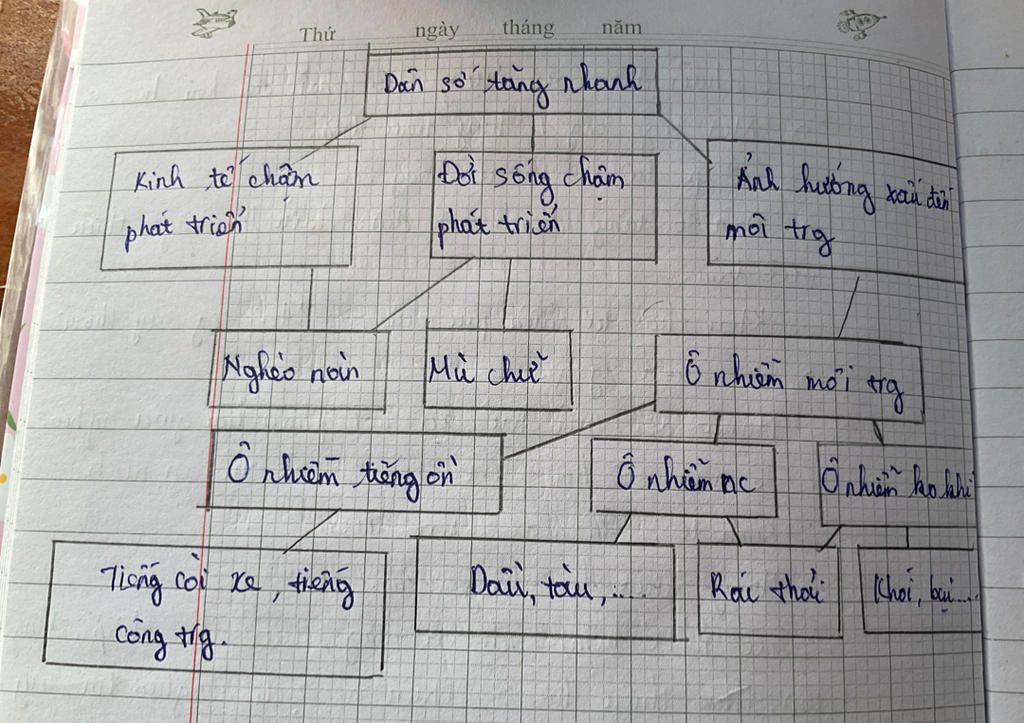 Thứ ngày tháng năm
Dân số tăng nhanh
Kinh tế chậm
phát triển
Đời sống chậm
phát triển
Ảnh hưởng xấu đến
môi trg
Nghèo nàn
Mù chữ
Ô nhiễm môi trg
Ô nhiễm tiếng ồn
Ô nhiễm nc
Ô nhiễm ko khí
Tiếng còi xe, tiếng
công trg.
Dầu, tàu,....
Rác thải
Khói, bụi....